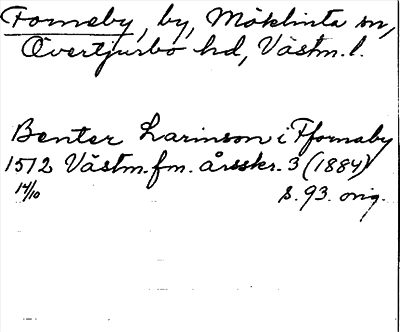 Forneby, by, Möklinta sn,
Övertjurbo hd, Västm. l.
Benter Larinson i Ffornaby
1512 Västm. fm. årsskr. 3 (1884)
14/10 s. 93. orig.